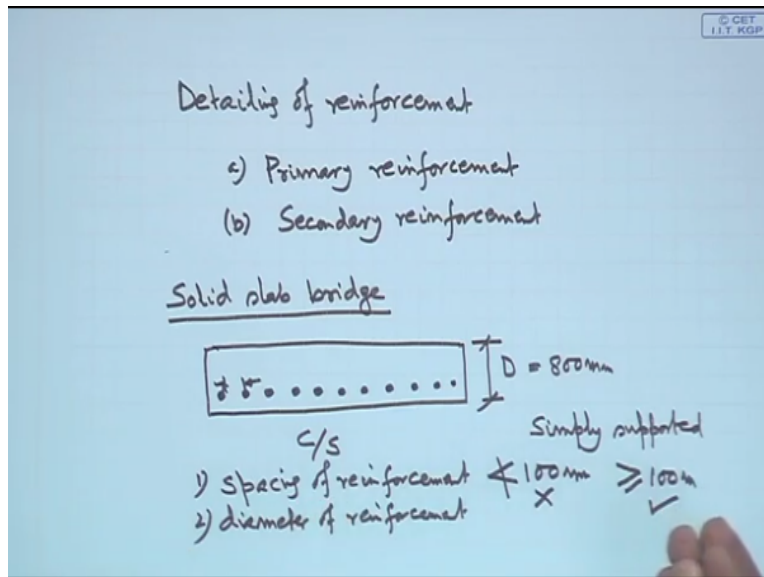 © CET
I.I.T. KGP
Detailing of reinforcement
a) Primary reinforcement
(b) Secondary reinforcement
Solid slab bridge
D = 800mm
C/S
Simply supported
1) spacing of reinforcement ≮ 100mm ≥ 100m
× ✓
2) diameter of reinforcement